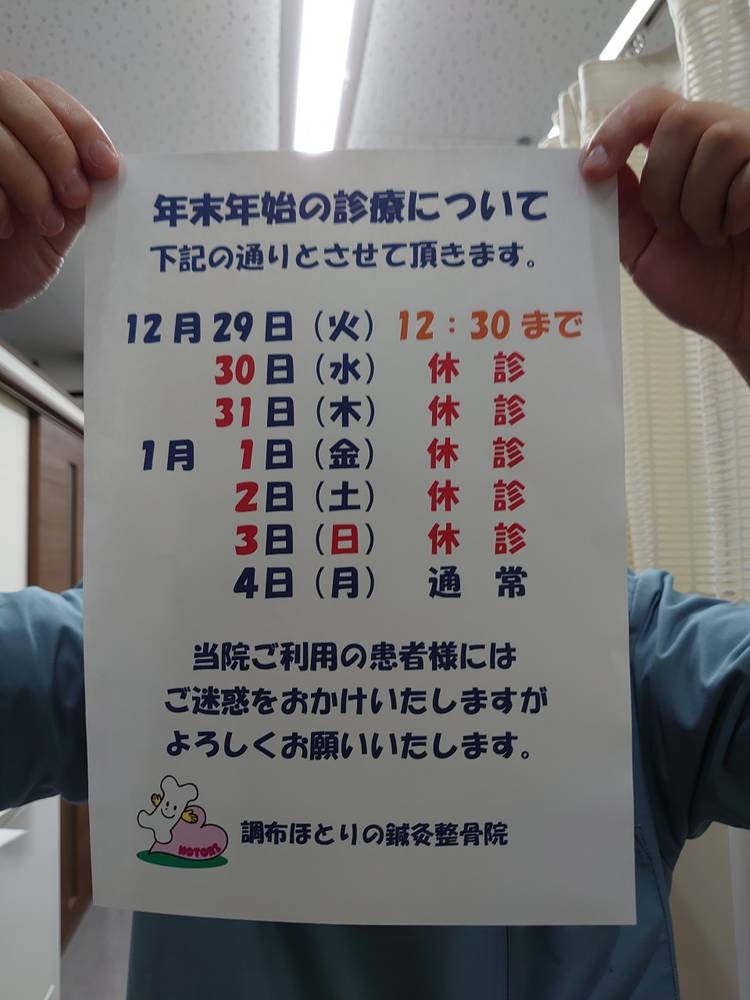 年末年始の診療について
下記の通りとさせて頂きます。
12月29日（火）12：30まで
30日（水）休診
31日（木）休診
1月 1日（金）休診
2日（土）休診
3日（日）休診
4日（月）通常
当院ご利用の患者様には
ご迷惑をおかけいたしますが
よろしくお願いいたします。
HOTORI
調布ほとりの鍼灸整骨院